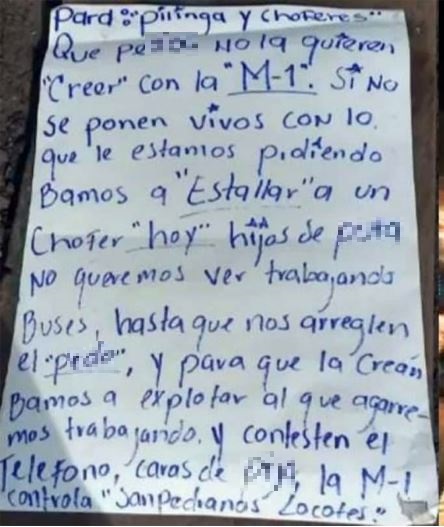 Para: "Pilinga y Choferes"
Que NO la quieren
"Creer" con la "M-1". Si NO
se ponen vivos con lo.
que le estamos pidiendo
Bamos a "Estallar" a un
Chofer "hoy" hijos de puta
No queremos ver trabajando
Buses, hasta que nos arreglen
el "pedo", y para que la Crean
Bamos a explotar al que agarre-
mos trabajando. y contesten el
Telefono, caras de la M-1
controla "Sanpechanos Locotes."